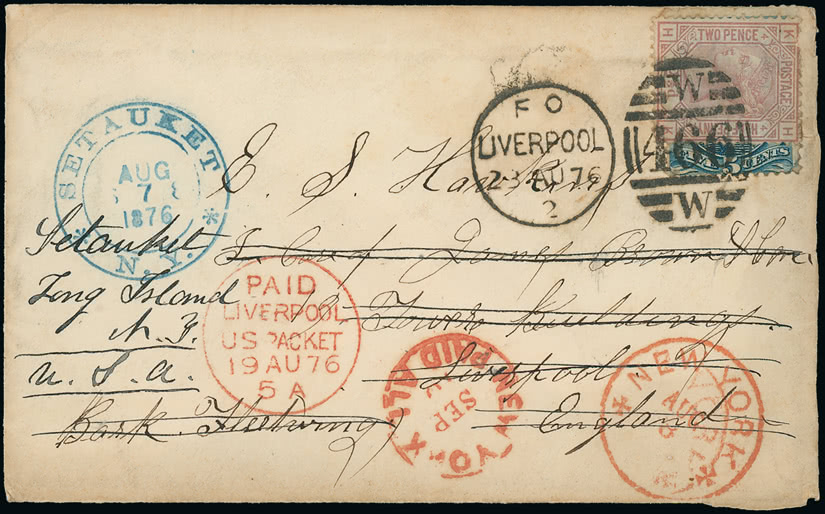 TWO PENCE
POSTAGE
H K
K H
SETAUKET
AUG
7
1876
N.Y.
F O
LIVERPOOL
23 AU 76
2
W
466
W
CENTS
E. S.
In Care of James Brown & Son
Tower Buildings.
Liverpool
England
Bark Fleetwing
Setauket
Long Island
N.Y.
U. S. A.
PAID
LIVERPOOL
US PACKET
19 AU 76
5 A
NEW YORK
SEP
PAID ALL
NEW YORK